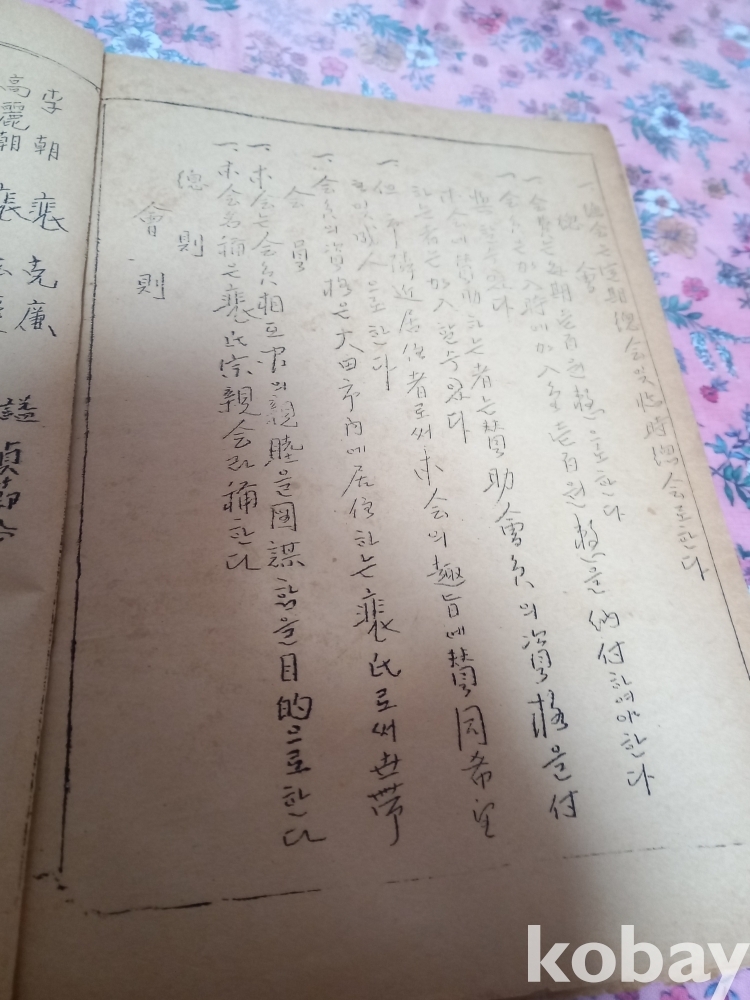 高麗朝 裵
李朝 裵克廉 諡 貞節公
會則
總則
一. 本会名稱은 裵氏宗親会라 稱한다
一. 本会는 会員相互間의 親睦을 圖謀함을 目的으로한다
会員
一. 会員의 資格은 大田市內에 居住하는 裵氏로써 世帶
成人으로한다
一. 但 市隣近 居住者로써 本会의 趣旨에 贊同希望
하는者는 加入할수있다
本会에 贊助하는者는 贊助會員의 資格을 付
與할수있다
一. 会員은 加入時에 加入金 壱百원整을 納付하여야한다
一. 会費는 每期 壱百원整으로한다
總會
一. 總会는 定期總会及 臨時總会로한다
kobay